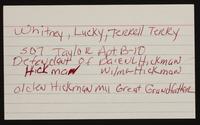 Whitney, Lucky, Terrell Terry
507 Taylor Apt B-10
Defendent of Hickman
Hickman Wilma Hickman
olden Hickman my Great Grandfather